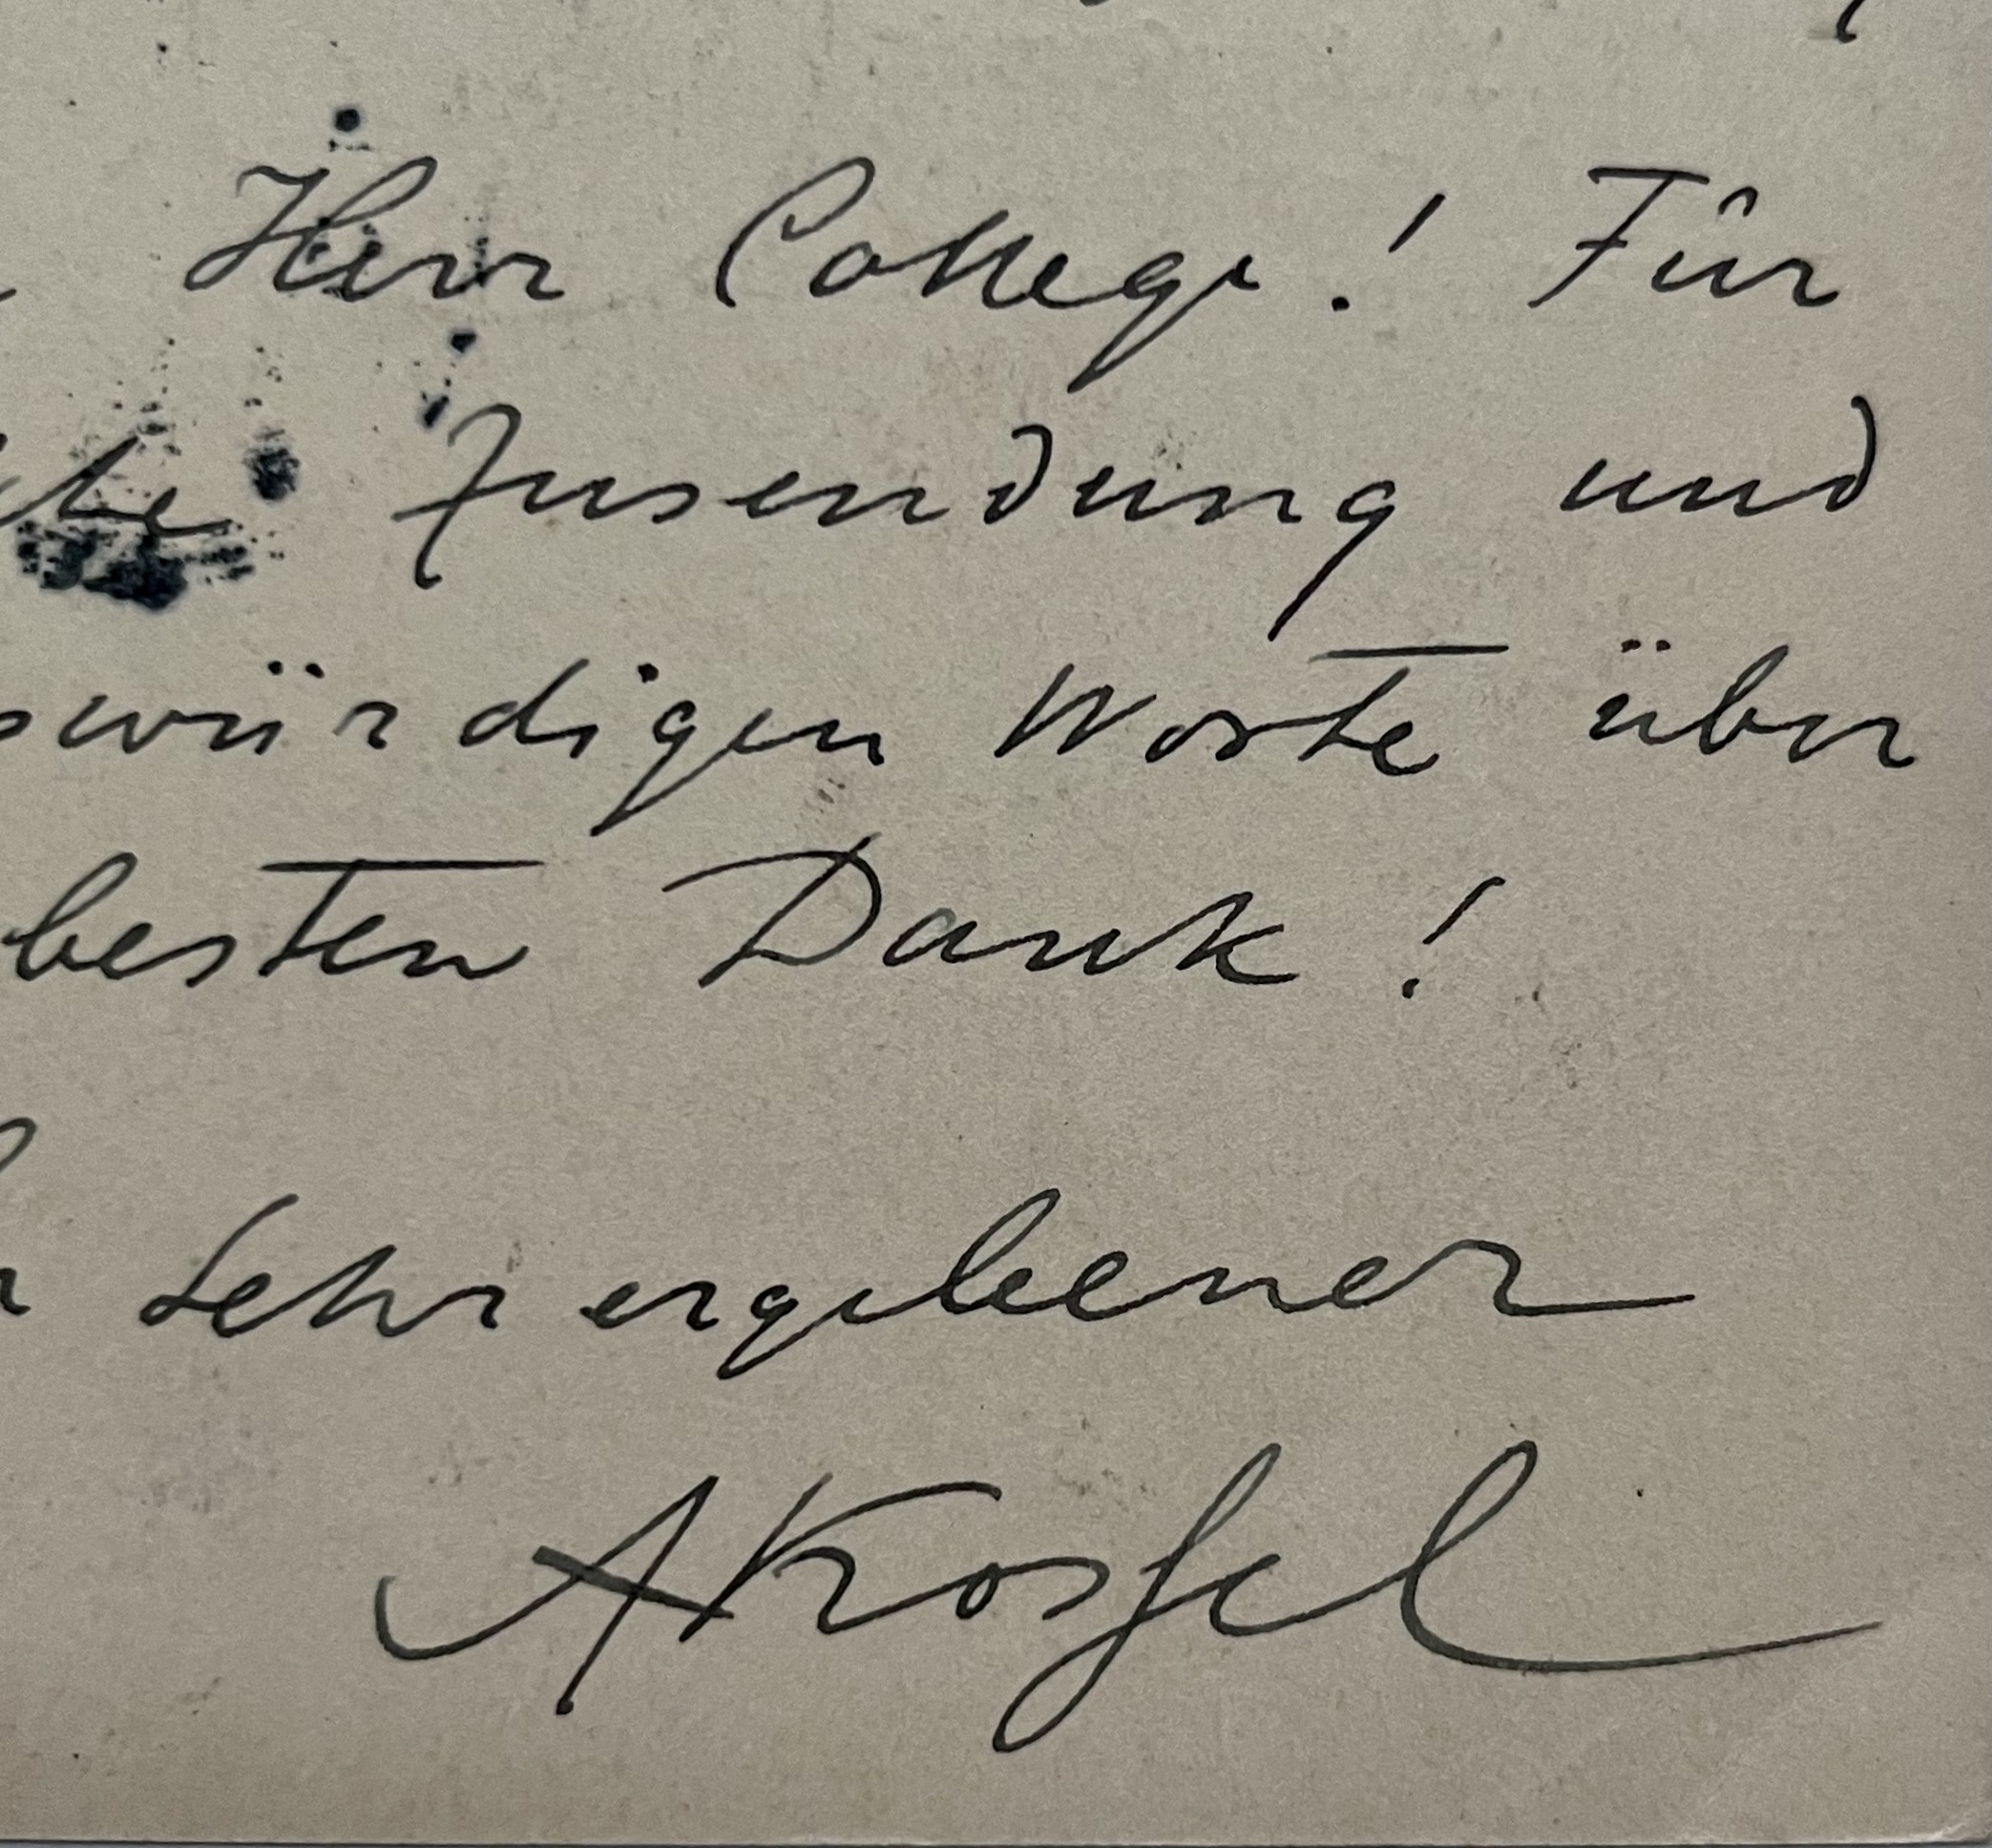 Herr College! Für
Zusendung und
swürdigen Worte über
besten Dank!
Sehr ergebener
AKossel